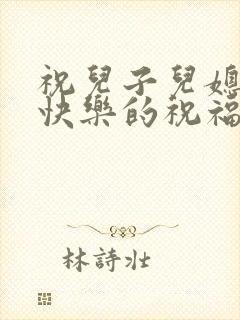 祝兒子兒媳
快樂的祝福
林詩壯